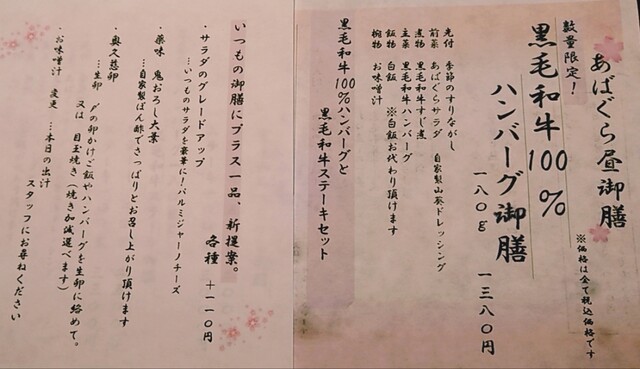 あばぐら昼御膳
※価格は全て税込価格です
数量限定!
黒毛和牛100%
ハンバーグ御膳
一八〇g 一三八〇円
先付 季節のすりながし
前菜 あばぐらサラダ 自家製山葵ドレッシング
煮物 黒毛和牛すじ煮
主菜 黒毛和牛ハンバーグ
飯物 白飯 ※白飯お代わり頂けます
椀物 お味噌汁
黒毛和牛100%ハンバーグと
黒毛和牛ステーキセット
いつもの御膳にプラス一品、新提案。
各種 +一一〇円
・サラダのグレードアップ
…いつものサラダを豪華に!パルミジャーノチーズ
・薬味 鬼おろし大葉
…自家製ぽん酢でさっぱりとお召し上がり頂けます
・奥久慈卵
…生卵 〆の卵かけご飯やハンバーグを生卵に絡めて。
又は 目玉焼き(焼き加減選べます)
・お味噌汁 変更 …本日の出汁
スタッフにお尋ねください